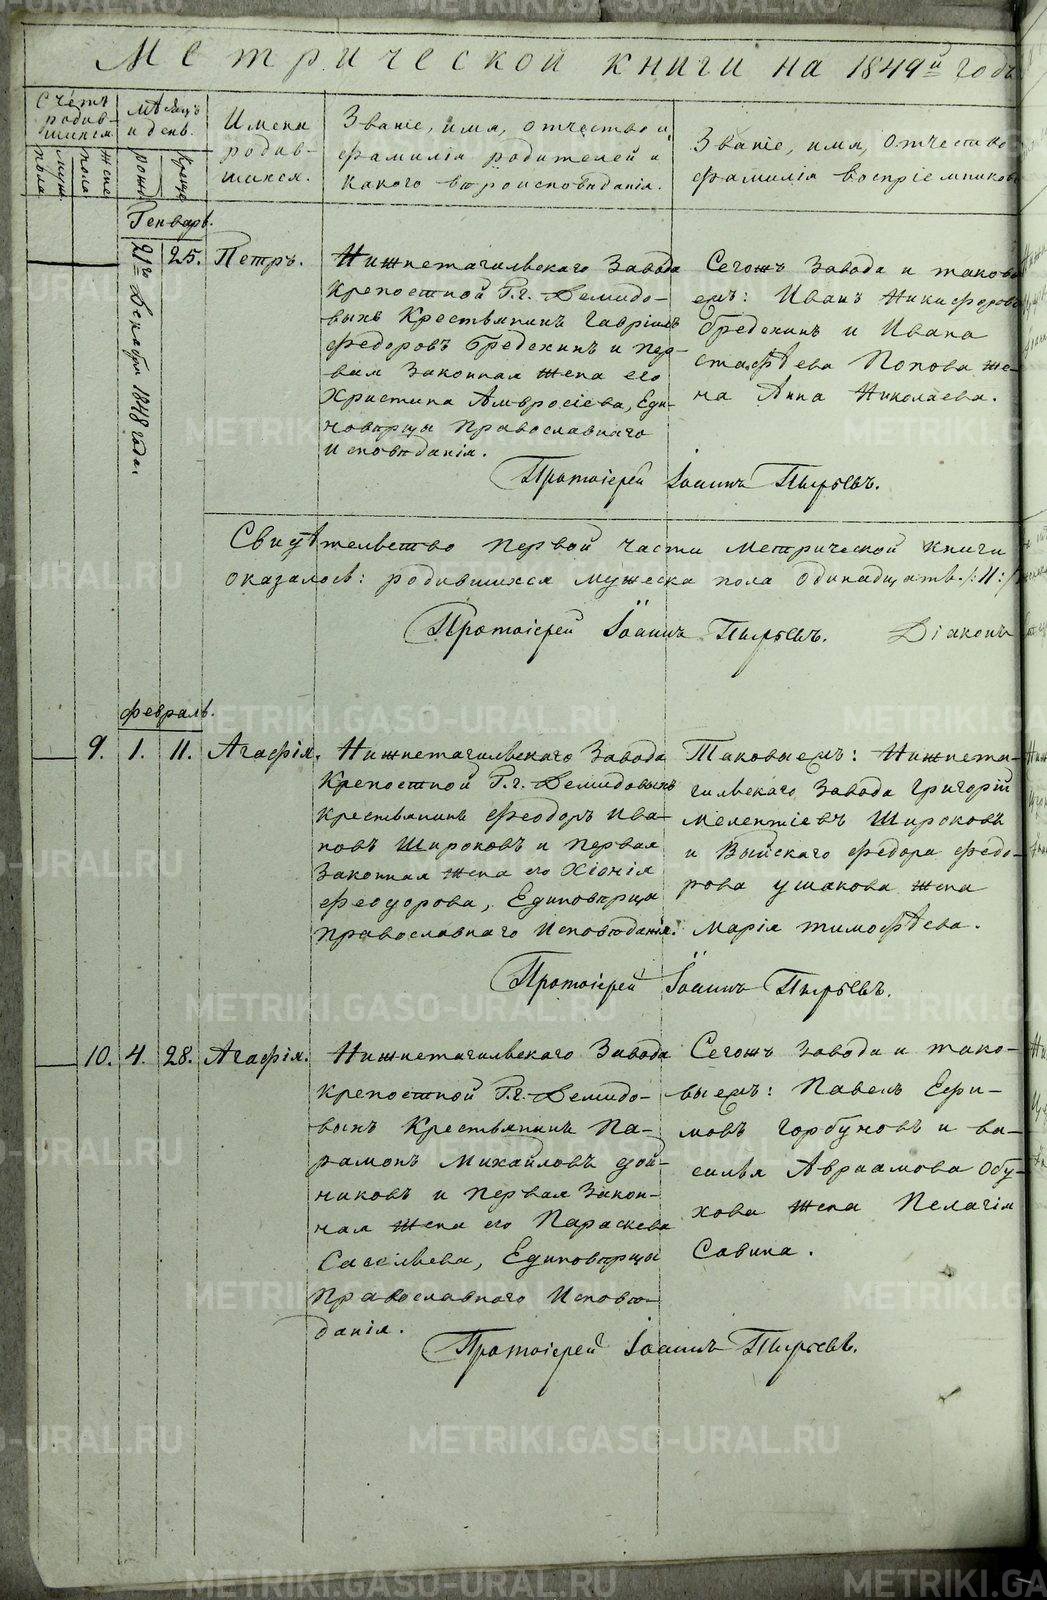 Метрической книги на 1849й годъ
Счетъ родив-
шихся.
муж. пола.
жен. пола.
Мѣсяцъ
и день.
рожд.
крещ.
Имена
родив-
шихся.
Званіе, имя, отчество и
фамилія родителей и
какого вѣроисповѣданія.
Званіе, имя, отчество
фамилія воспріемниковъ
Генварь.
21го Декабря 1848 года.
25.
Петръ.
Нижнетагильскаго Завода
Крепостной Г.г. Демидо-
выхъ Крестьянинъ Гавріилъ
Федоровъ Бредехинъ и пер-
вая Законная жена его
Христина Амвросіева, Еди-
новѣрцы Православнаго
Исповѣданія.
Сегожъ Завода и таков
емъ: Иванъ Никифоровъ
Бредехинъ и Ивана
Стафѣева Попова же-
на Анна Николаева.
Протоіерей Іоаннъ Пырьевъ.
Свидѣтельство первой части Метрической книги
оказалось: родившихся мужеска пола одинадцать. /:11:/
Протоіерей Іоаннъ Пырьевъ. Діаконъ
Февраль.
9. 1. 11. Агафія.
Нижнетагильскаго Завода
Крепостной Г.г. Демидовыхъ
Крестьянинъ Феодоръ Ива-
новъ Широковъ и первая
Законная жена его Хіонія
Феодорова, Единовѣрцы
Православнаго Исповѣданія.
Таковыемъ: Нижнета-
гильскаго Завода Григорій
Мелентіевъ Широковъ
и Выйскаго Федора Федо-
рова Ушакова жена
Марія Тимофѣева.
Протоіерей Іоаннъ Пырьевъ.
10. 4. 28. Агафія.
Нижнетагильскаго Завода
крепостной Г.г. Демидо-
выхъ Крестьянинъ Па-
рамонъ Михайловъ Дой-
никовъ и первая Закон-
ная жена его Параскева
Савельева, Единовѣрцы
Православнаго Исповѣ-
данія.
Сегожъ Завода и тако-
выемъ: Павелъ Ефи-
мовъ Горбуновъ и Ва-
силья Авраамова Обу-
хова жена Пелагія
Савина.
Протоіерей Іоаннъ Пырьевъ.
METRIKI.GASO-URAL.RU